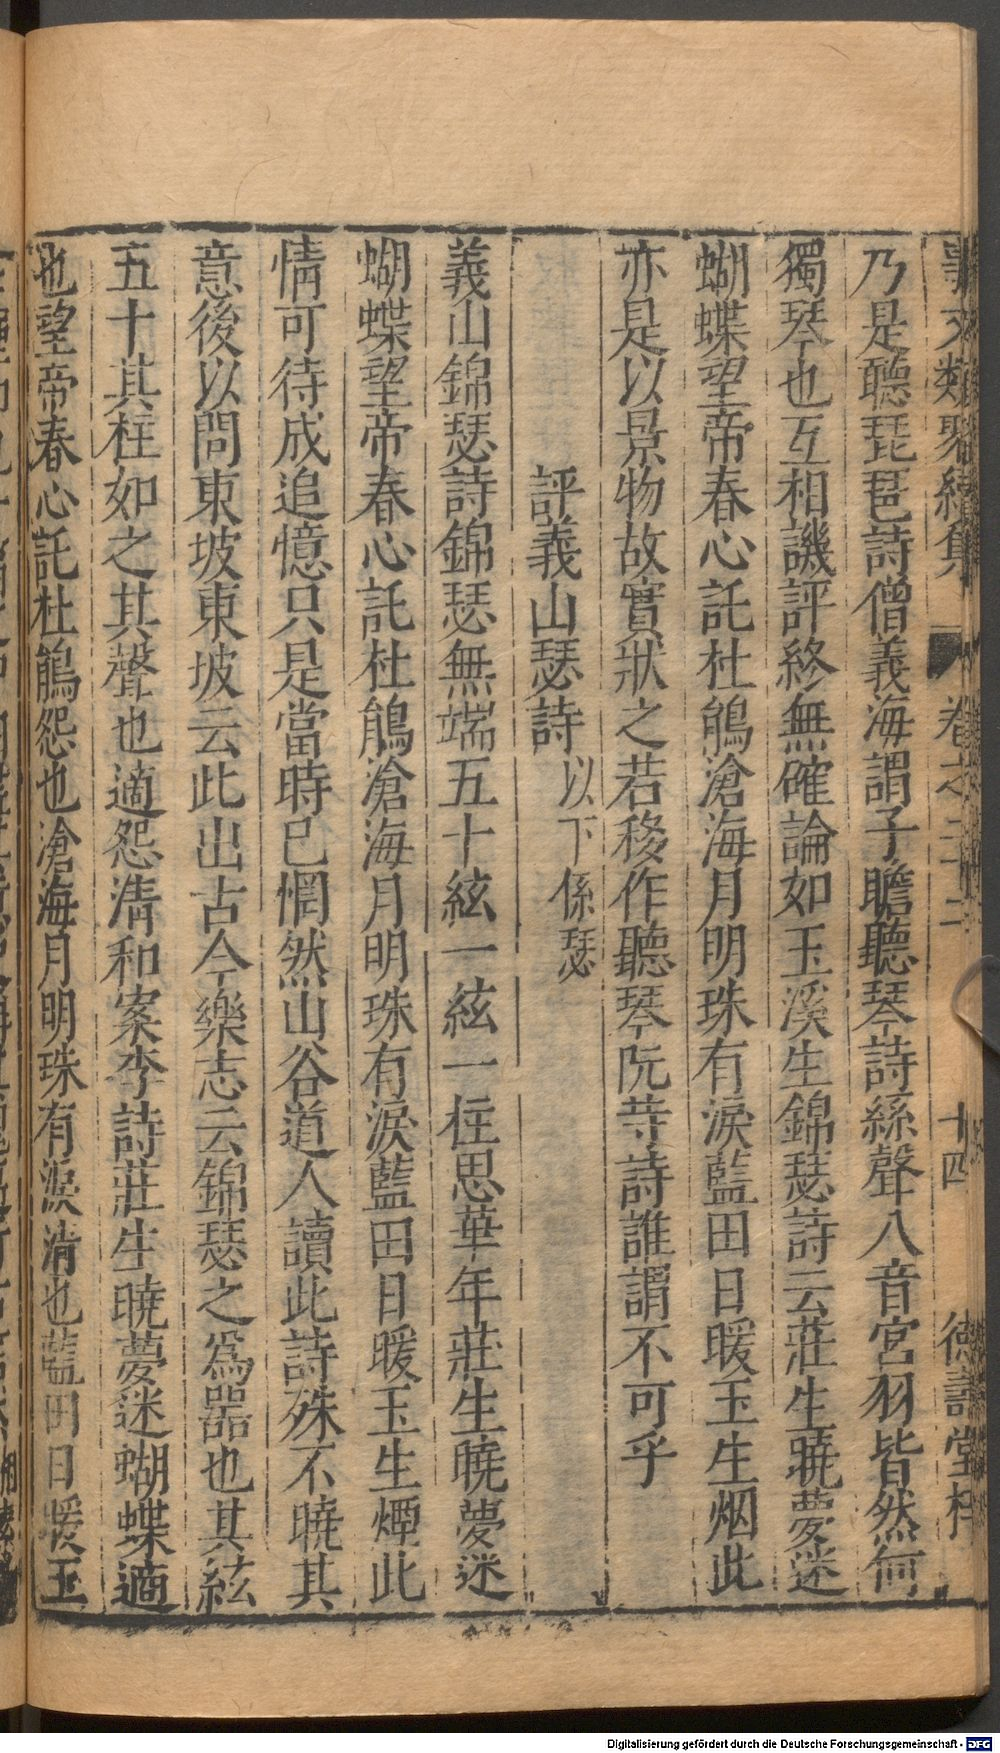 事文類聚續集 卷之二十二 十四 德壽堂梓
乃是聽琵琶詩僧義海謂子瞻聽琴詩絲聲八音宮羽皆然何
獨琴也互相譏評終無確論如玉溪生錦瑟詩云莊生曉夢迷
蝴蝶望帝春心託杜鵑滄海月明珠有淚藍田日暖玉生烟此
亦是以景物故實狀之若移作聽琴阮等詩誰謂不可乎
評義山瑟詩 以下係瑟
義山錦瑟詩錦瑟無端五十絃一絃一柱思華年莊生曉夢迷
蝴蝶望帝春心託杜鵑滄海月明珠有淚藍田日暖玉生煙此
情可待成追憶只是當時已惘然山谷道人讀此詩殊不曉其
意後以問東坡東坡云此出古今樂志云錦瑟之爲器也其絃
五十其柱如之其聲也適怨清和案李詩莊生曉夢迷蝴蝶適
也望帝春心託杜鵑怨也滄海月明珠有淚清也藍田日暖玉
Digitalisierung gefördert durch die Deutsche Forschungsgemeinschaft - DFG